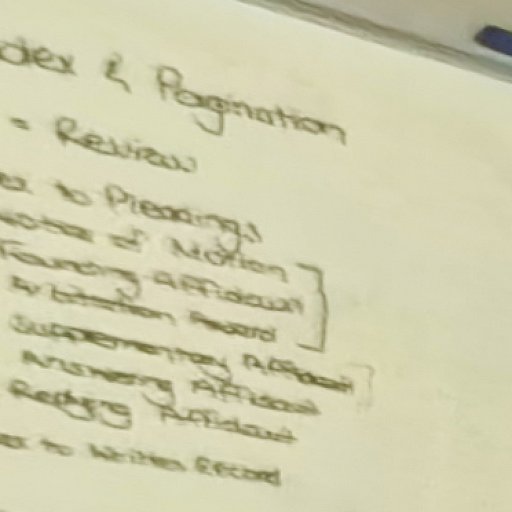 dex & Pagination
= Review
ex to Pleadings
Notice of Motion
Founding Affidavit
Record
Supplementary Affidavit
Answering Affidavit
Replying Affidavit
ex to Written Record